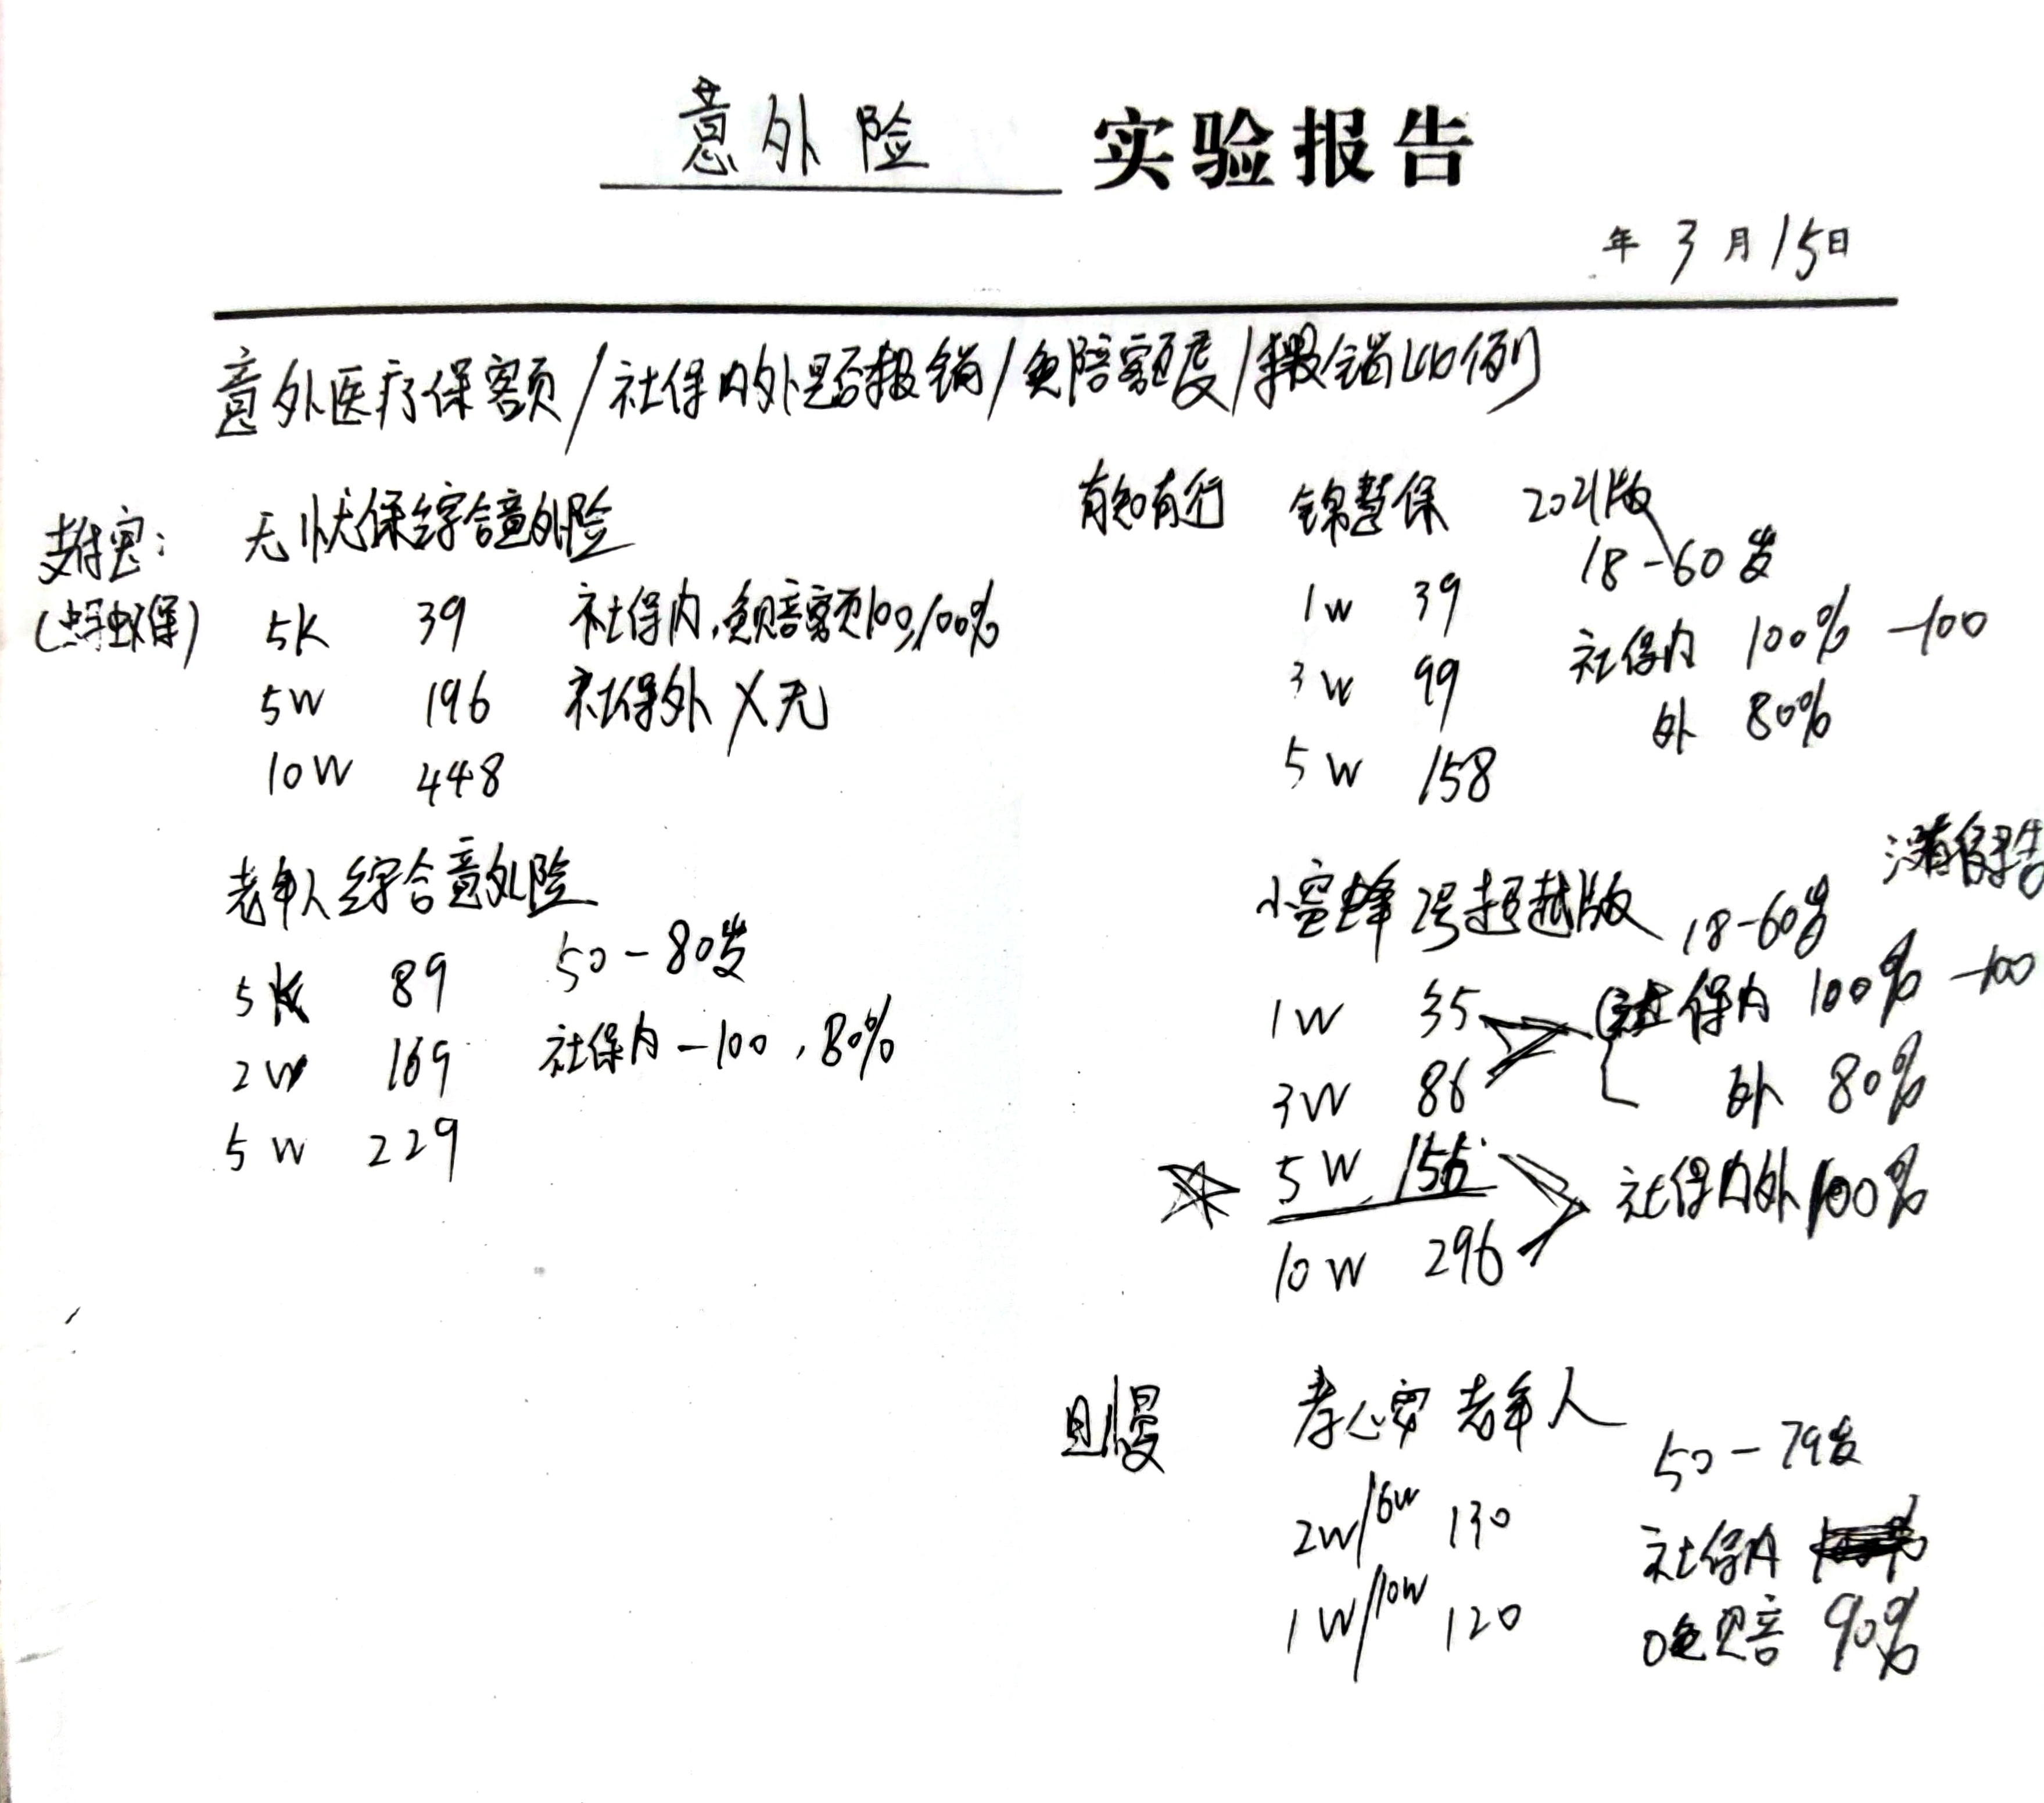 意外险 实验报告
年 3 月 15 日
意外医疗保额/社保内外是否报销/免陪额度/报销比例
支付宝:
(蚂蚁保)
无忧保综合意外险
5K 39 社保内,免赔额100,100%
5W 196 社保外 X无
10W 448
老年人综合意外险
50-80岁
5K 89
2W 169 社保内-100,80%
5W 229
有知有行 锦慧保 2021版
18-60岁
1W 39 社保内 100% -100
3W 99 外 80%
5W 158
小蜜蜂2号超越版 18-60岁
没有
1W 35 社保内 100% -100
3W 86 外 80%
5W 155 社保内外100%
10W 296
且慢 孝心安 老年人
50-79岁
2W/6W 130 社保内
1W/10W 120 0免赔 90%